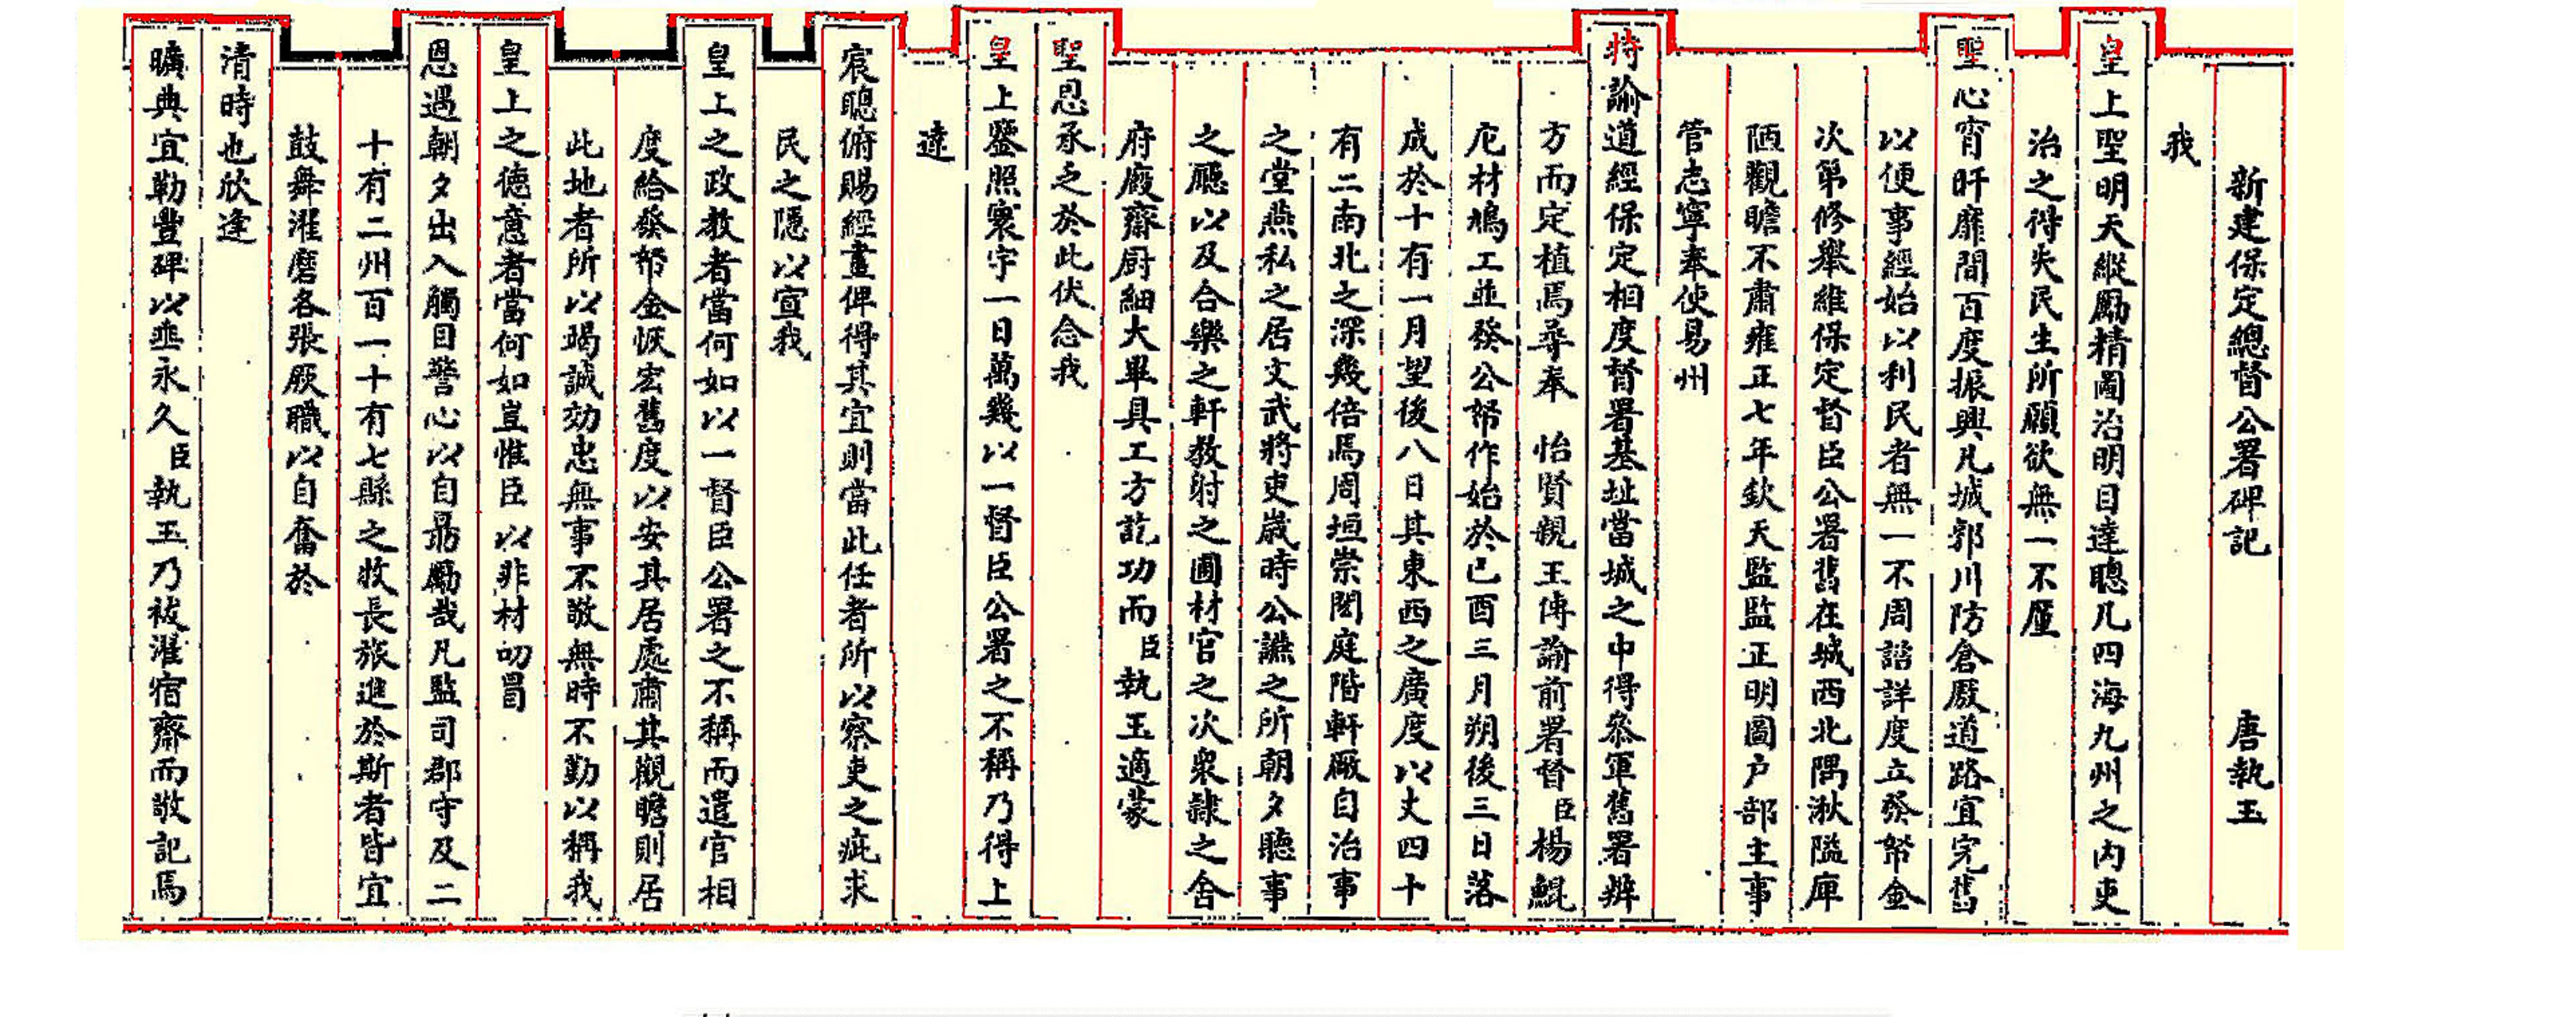 新建保定總督公署碑記 唐執玉
我
皇上聖明天縱勵精圖治明目達聰凡四海九州之內吏
治之得失民生所願欲無一不厪
聖心宵旰靡間百度振興凡城郭川防倉廒道路宜完舊
以便事經始以利民者無一不周諮詳度立發帑金
次第修舉維保定督臣公署舊在城西北隅湫隘庳
陋觀瞻不肅雍正七年欽天監監正明圖户部主事
管志寧奉使易州
特諭道經保定相度督署基址當城之中得叅軍舊署辨
方而定植焉尋奉 怡賢親王傳諭前署督臣楊鯤
庀材鳩工並發公帑作始於已酉三月朔後三日落
成於十有一月望後八日其東西之廣度以丈四十
有二南北之深幾倍焉周垣崇閎庭階軒厰自治事
之堂燕私之居文武將吏歲時公讌之所朝夕聽事
之廳以及合樂之軒教射之圃材官之次衆隷之舍
府廄齋厨細大畢具工方訖功而臣執玉適蒙
聖恩承乏於此伏念我
皇上鑒照寰宇一日萬幾以一督臣公署之不稱乃得上
達
宸聰俯賜經畫俾得其宜則當此任者所以察吏之疵求
民之隱以宣我
皇上之政教者當何如以一督臣公署之不稱而遣官相
度給發帑金恢宏舊度以安其居處肅其觀瞻則居
此地者所以竭誠効忠無事不敬無時不勤以稱我
皇上之德意者當何如豈惟臣以非材叨冒
恩遇朝夕出入觸目警心以自勗勵哉凡監司郡守及二
十有二州百一十有七縣之牧長旅進於斯者皆宜
鼓舞濯磨各張厥職以自奮於
清時也欣逢
曠典宜勒豐碑以垂永久臣執玉乃祓濯宿齋而敬記焉